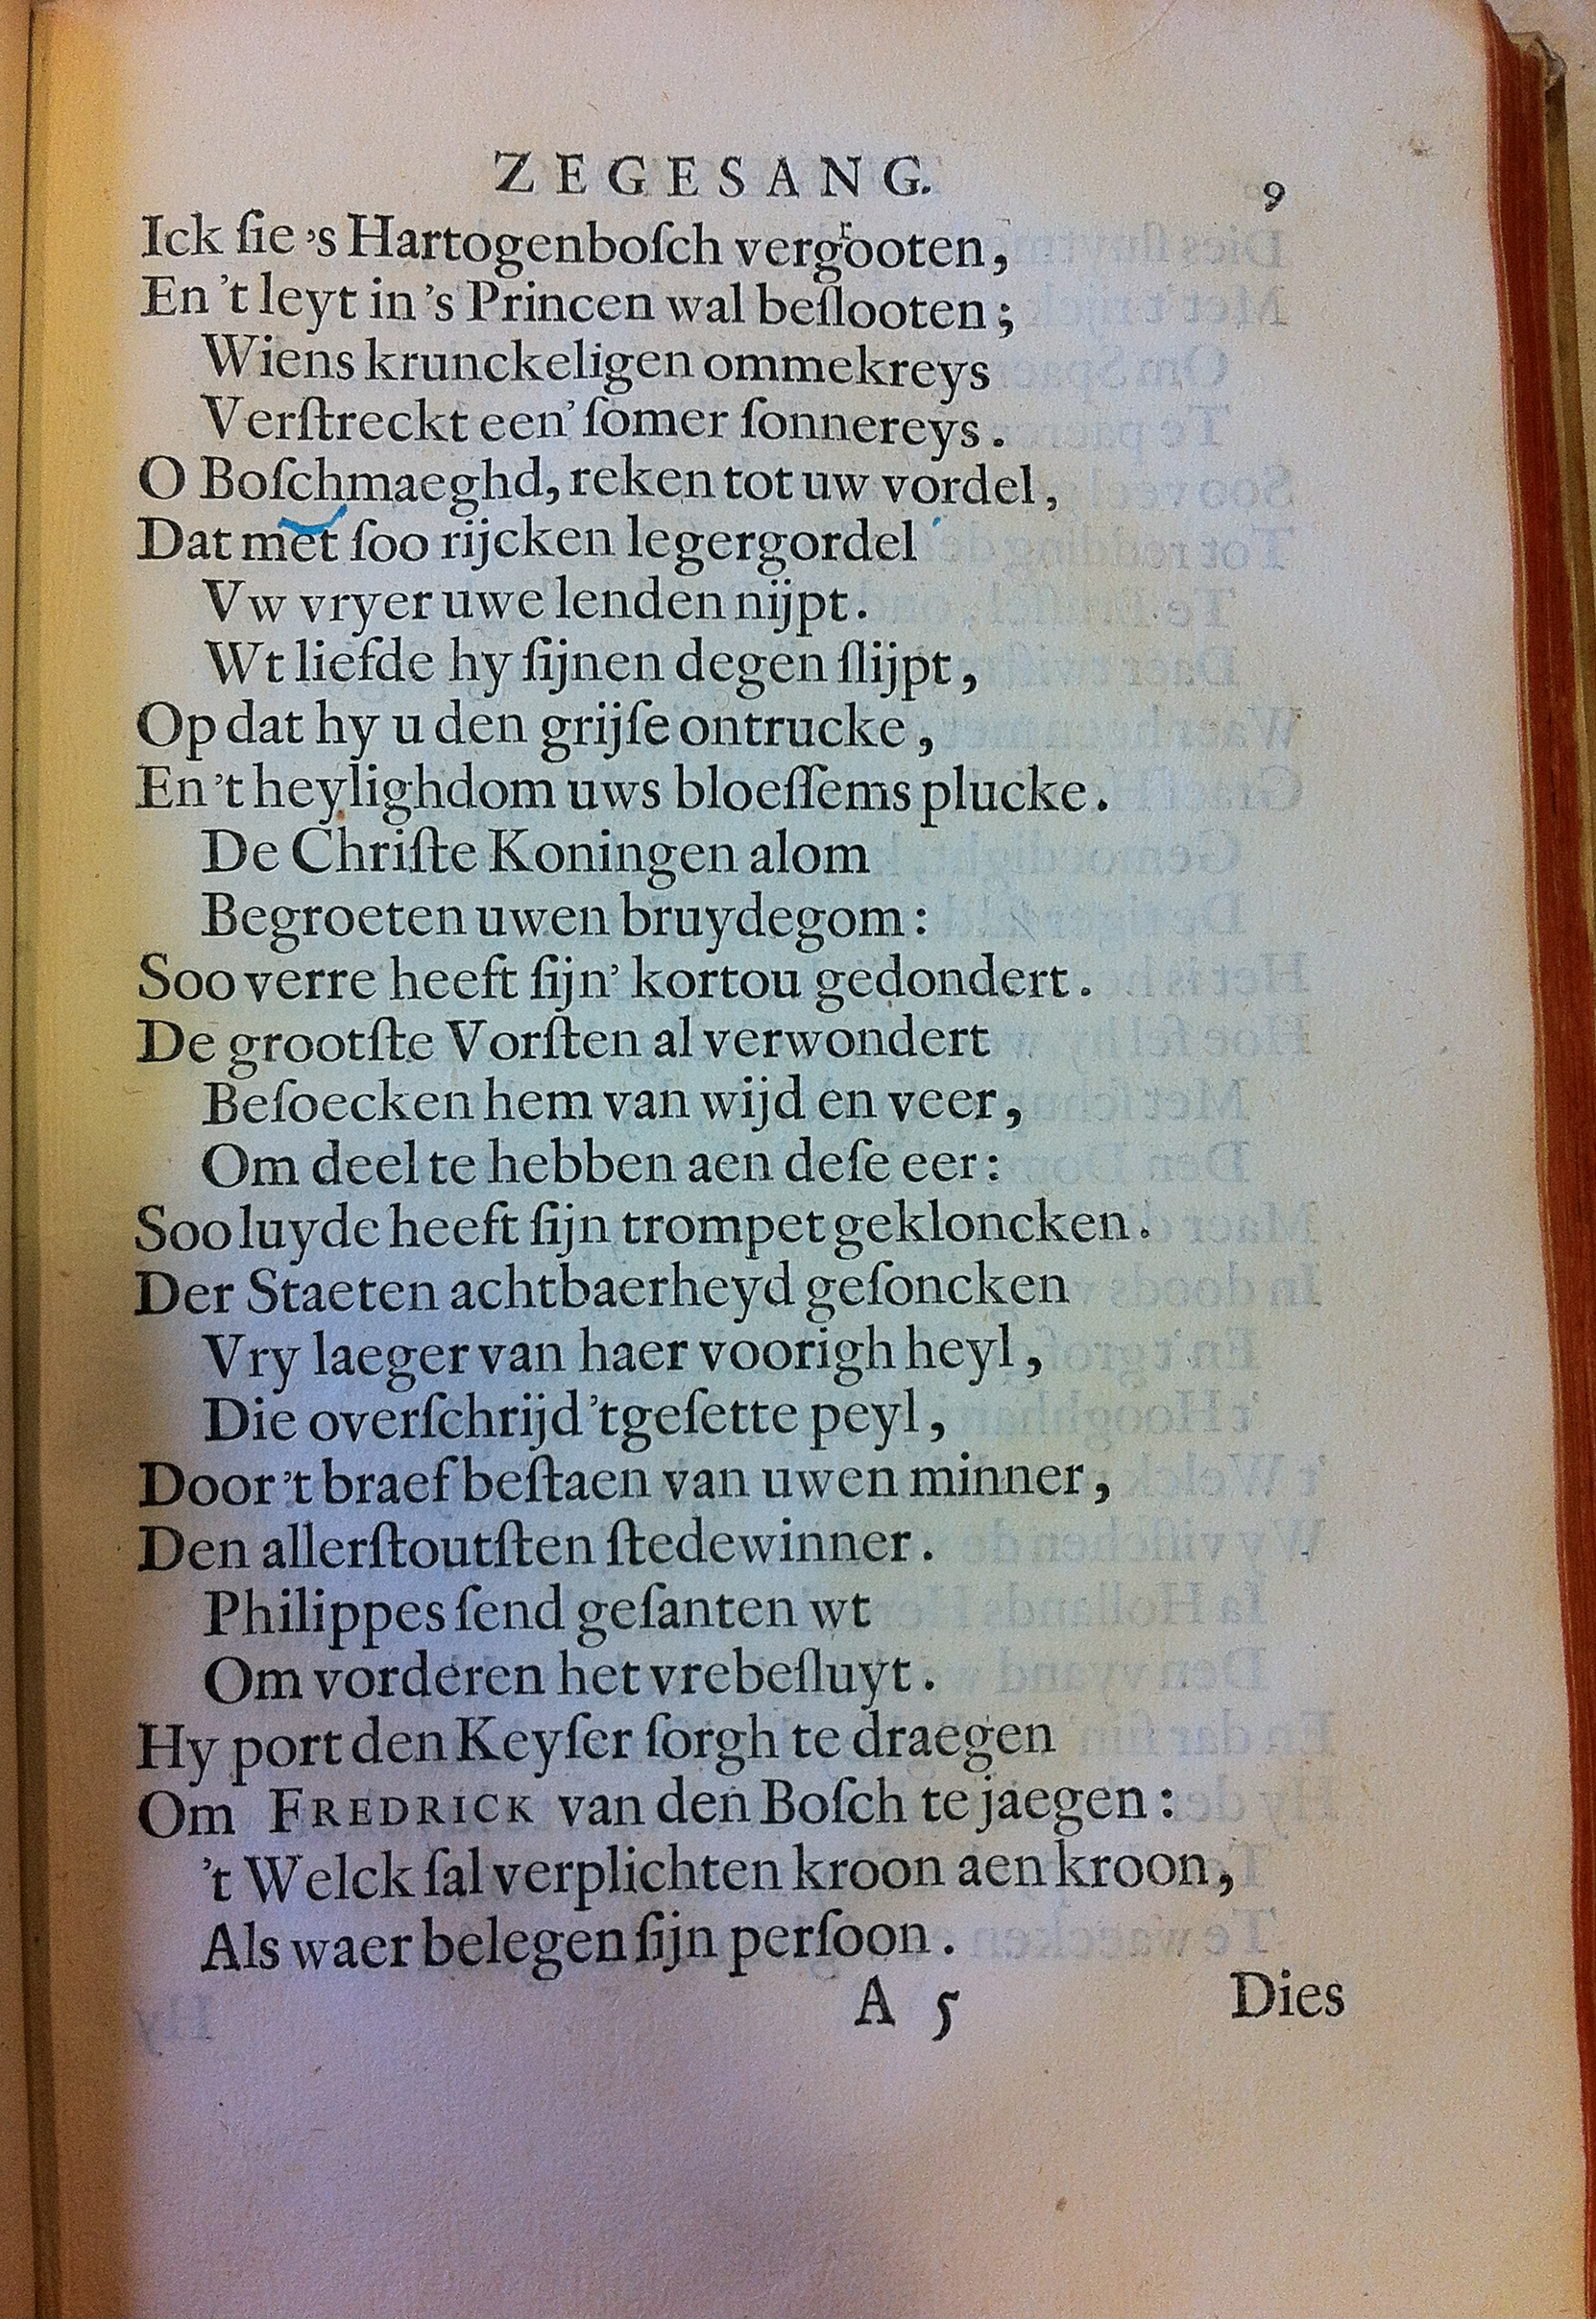 ZEGESANG. 9
Ick ſie 's Hartogenboſch vergrooten,
En 't leyt in 's Princen wal beſlooten;
Wiens krunckeligen ommekreys
Verſtreckt een' ſomer ſonnereys.
O Boſchmaeghd, reken tot uw vordel,
Dat met ſoo rijcken legergordel
Vw vryer uwe lenden nijpt.
Wt liefde hy ſijnen degen ſlijpt,
Op dat hy u den grijſe ontrucke,
En 't heylighdom uws bloeſſems plucke.
De Chriſte Koningen alom
Begroeten uwen bruydegom:
Soo verre heeft ſijn' kortou gedondert.
De grootſte Vorſten al verwondert
Beſoecken hem van wijd en veer,
Om deel te hebben aen deſe eer:
Soo luyde heeft ſijn trompet gekloncken.
Der Staeten achtbaerheyd geſoncken
Vry laeger van haer voorigh heyl,
Die overſchrijd 'tgeſette peyl,
Door 't braef beſtaen van uwen minner,
Den allerſtoutſten ſtedewinner.
Philippes ſend geſanten wt
Om vorderen het vrebeſluyt.
Hy port den Keyſer ſorgh te draegen
Om FREDRICK van den Boſch te jaegen:
't Welck ſal verplichten kroon aen kroon,
Als waer belegen ſijn perſoon.
A 5 Dies